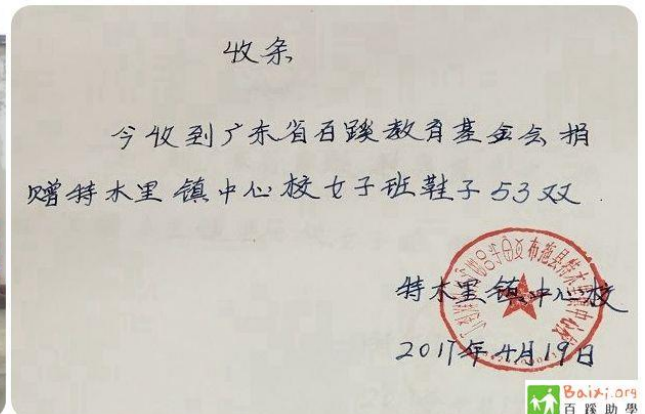 收条
今收到广东省百蹊教育基金会捐
赠特木里镇中心校女子班鞋子53双.
布拖县特木里镇中心校
特木里镇中心校
2017年4月19日
Baixi.org
百蹊助學